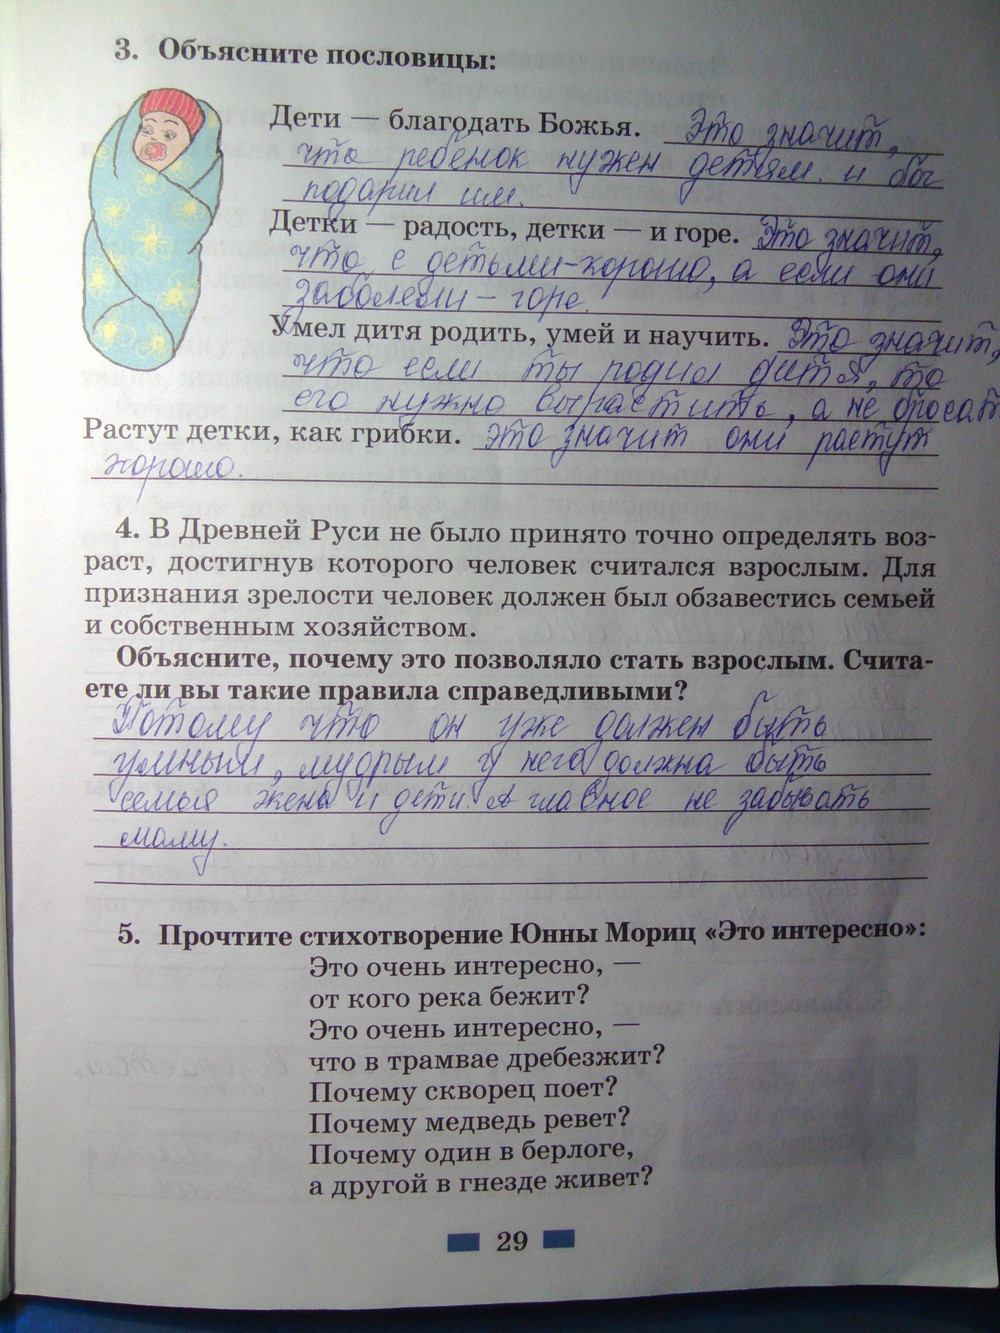 3. Объясните пословицы:
Дети — благодать Божья. Это значит,
что ребёнок нужен детям. и бог
подарил им.
Детки — радость, детки — и горе. Это значит,
что с детьми-хорошо, а если они
заболели – горе.
Умел дитя родить, умей и научить. Это значит,
что если ты родил дитя, то
его нужно вырастить, а не бросат
Растут детки, как грибки. это значит они растут
хорошо.
4. В Древней Руси не было принято точно определять воз-
раст, достигнув которого человек считался взрослым. Для
признания зрелости человек должен был обзавестись семьей
и собственным хозяйством.
Объясните, почему это позволяло стать взрослым. Счита-
ете ли вы такие правила справедливыми?
Потому что он уже должен быть
умным, мудрым у него должна быть
семья жена и дети. А главное не забывать
маму.
5. Прочтите стихотворение Юнны Мориц «Это интересно»:
Это очень интересно, —
от кого река бежит?
Это очень интересно, —
что в трамвае дребезжит?
Почему скворец поет?
Почему медведь ревет?
Почему один в берлоге,
а другой в гнезде живет?
29